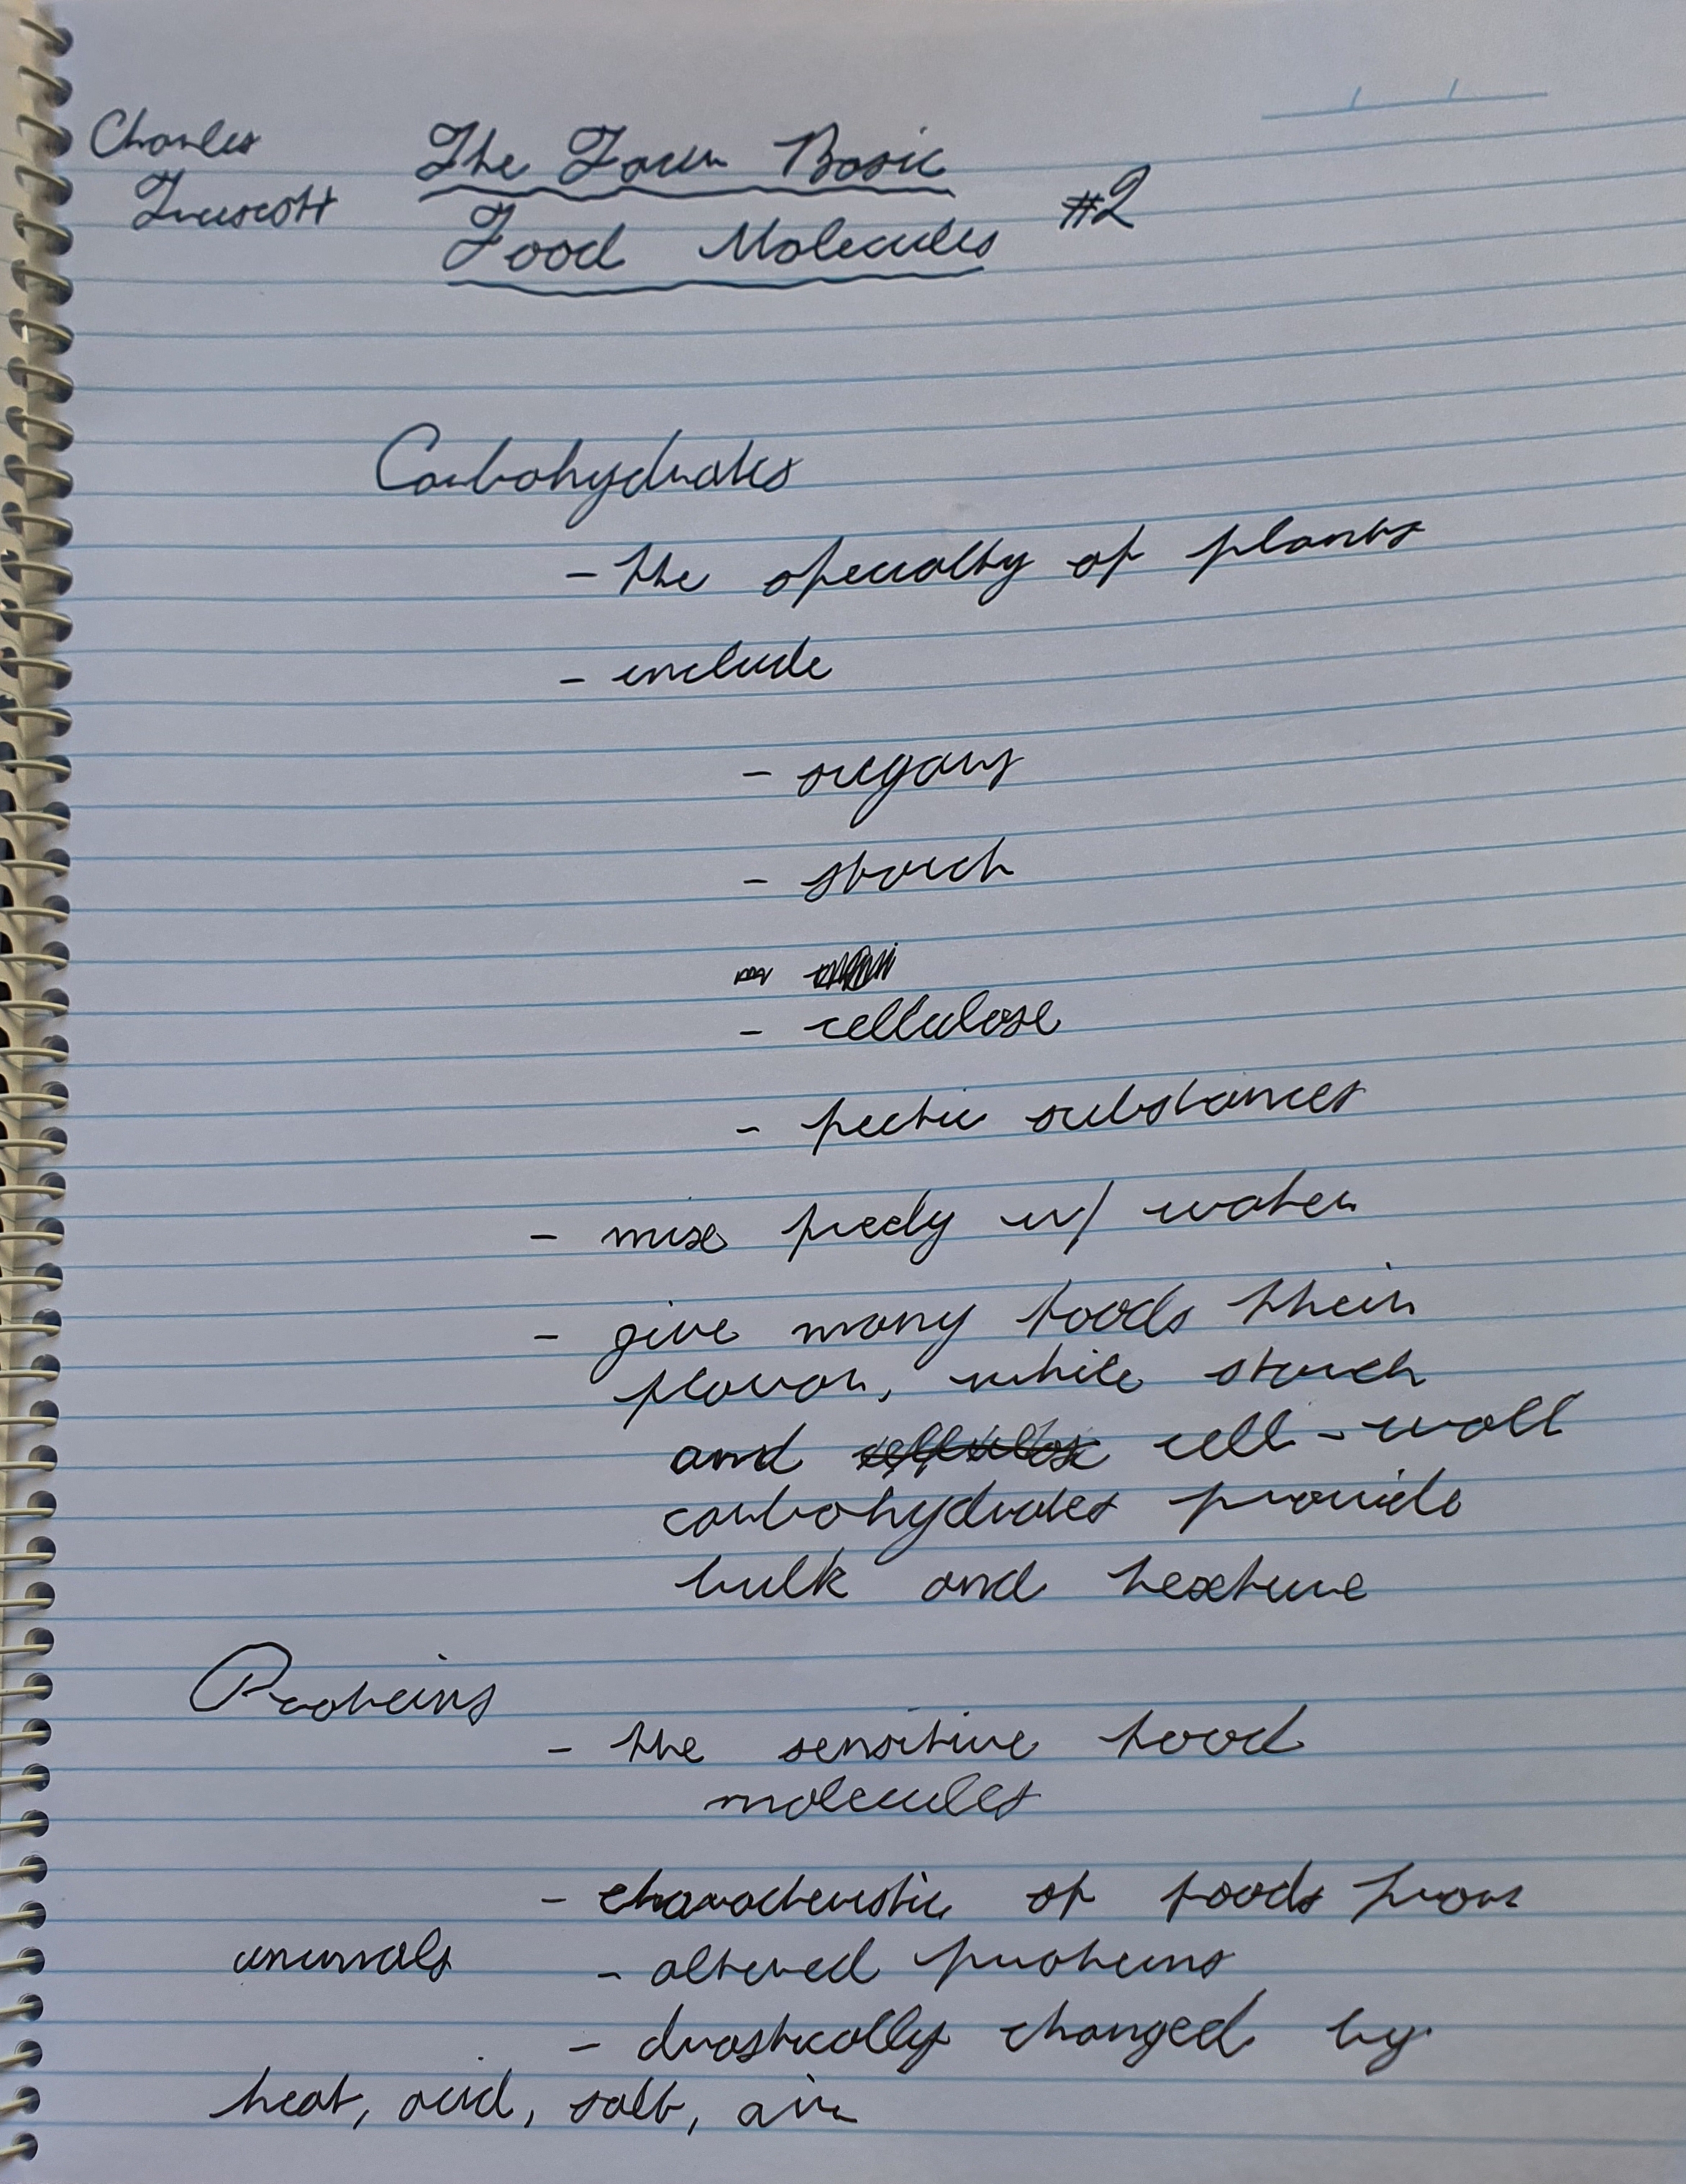 Charles The Four Basic
Truscott Food Molecules #2
Carbohydrates
- the specialty of plants
- include
- sugars
- starch
- cellulose
- pectic substances
- mix freely w/ water
- give many foods their
flavor, while starch
and cellulose cell-wall
carbohydrates provide
bulk and texture
Proteins
- the sensitive food
molecules
- characteristic of foods from
animals - altered proteins
- drastically changed by
heat, acid, salt, air